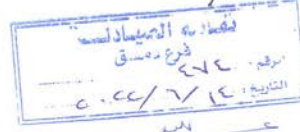 نقابة الصيادلة
فرع دمشق
الرقم: ٤٧٤
التاريخ: ١٤ / ٦ / ٢٠٢٢